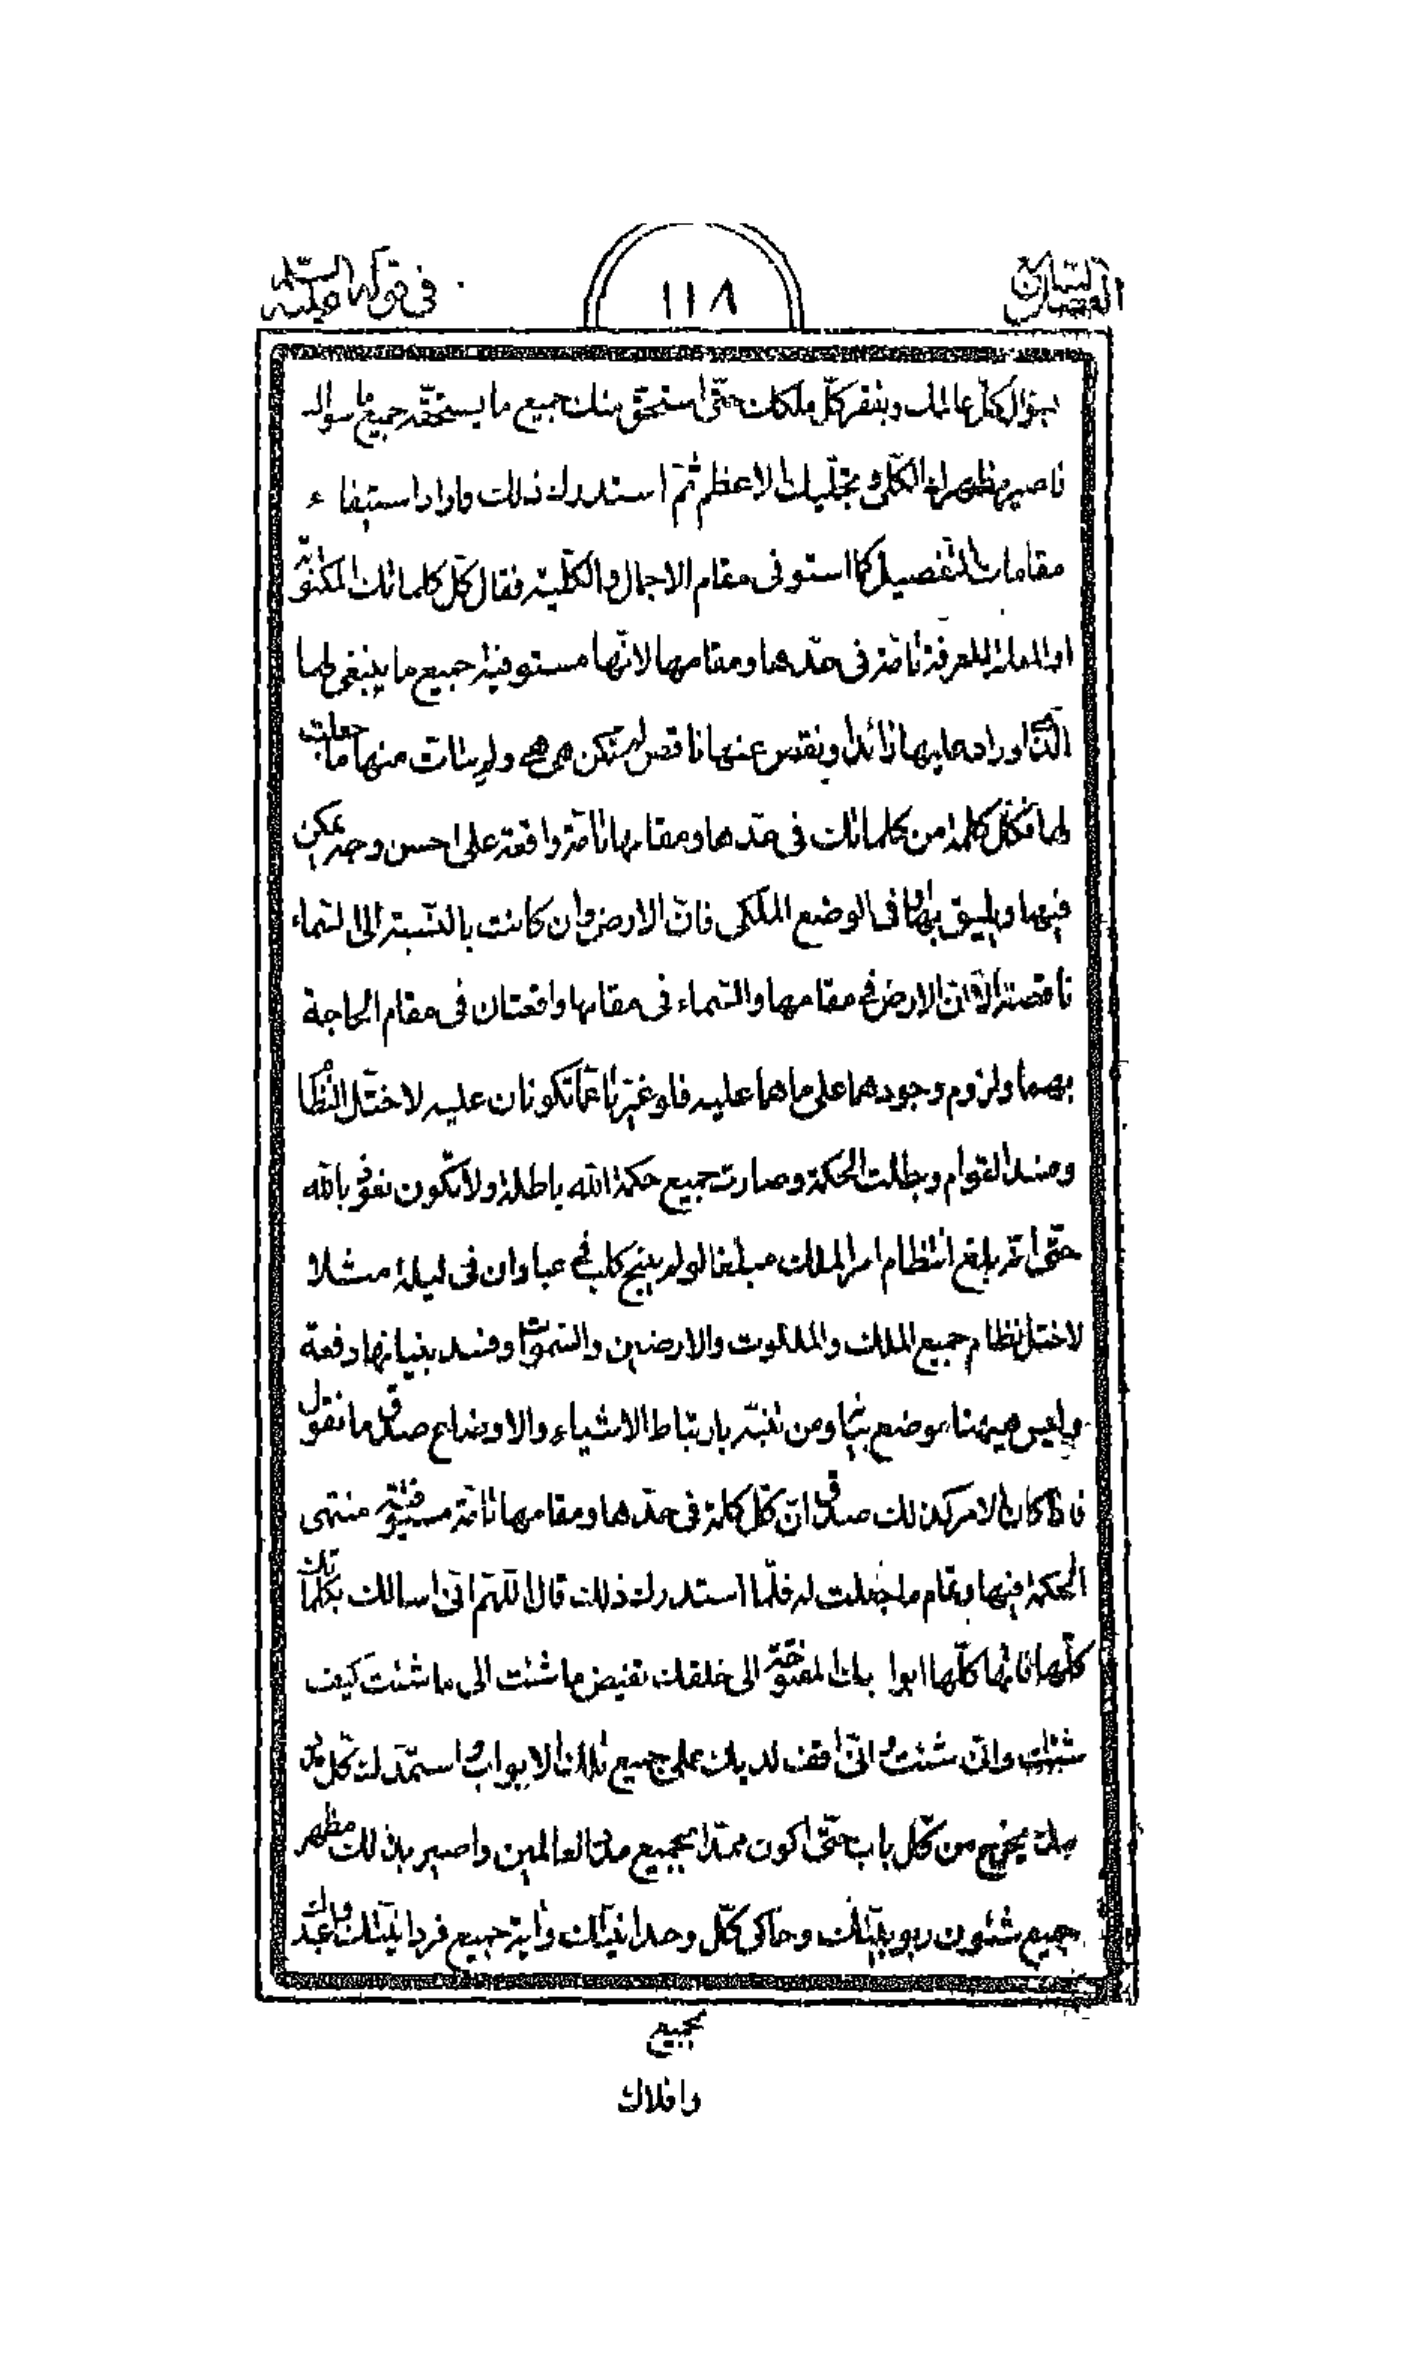 في قوله عليه السلام
١١٨
بسؤال كل عالمك وبفقر كل ملكك حتى استحق منك جميع ما يستحقه جميع ما سواك
فاصير مظهرك الكلي وتجليك الاعظم ثم استدرك ذلك واراد استيفاء
مقامات التفصيل كما استوفى مقام الاجمال والكلية فقال كل كلماتك المكنونة
للمعرفة تامة في حدها ومقامها لانها مستوفية جميع ما ينبغي لها
عليها زائد او نقص عنها ناقص لم تكن هي هي ولم يتأت منها ما جعلت
لها فكل كلمة من كلماتك في حدها ومقامها تامة واقعة على احسن وجه يمكن
فيها ويليق بها في الوضع الملكي فان الارض وان كانت بالنسبة الى السماء
ناقصة الا ان الارض في مقامها والسماء في مقامها واقعتان في مقام الحاجة
بهما ولزوم وجودهما على ما هما عليه فلو غيرتا عما تكونان عليه لاختل النظام
وفسد القوام وبطلت الحكمة وصارت جميع حكمة الله باطلة ولا تكون نعوذ بالله
حتى انه بلغ انتظام امر الملك مبلغا لو لم ينبح كلب في عبادان في ليلة مثلا
لاختل نظام جميع الملك والملكوت والارضين والسموات وفسد بنيانها دفعة
وليس هيهنا موضع بيانه ومن تنبه بارتباط الاشياء والاوضاع صدق ما نقول
فاذا كان الامر كذلك صدق ان كل كلمة في حدها ومقامها تامة مستوفية منتهى
الحكمة فيها وتمام ما جعلت له فلما استدرك ذلك قال اللهم اني اسالك بكلماتك
كلها فانها كلها ابوابك المفتوحة الى خلقك تفيض ما شئت الى ما شئت كيف
شئت واني شئت اني اقف لديك على جميع تلك الابواب استمد لك كل مدد
منك يخرج من كل باب حتى اكون ممدا بجميع مدد العالمين واصير بذلك مظهر
جميع شئون ربوبيتك وحاكي كل وحدانيتك وآية جميع فردانيتك واعبدك
بجميع
وافلاك